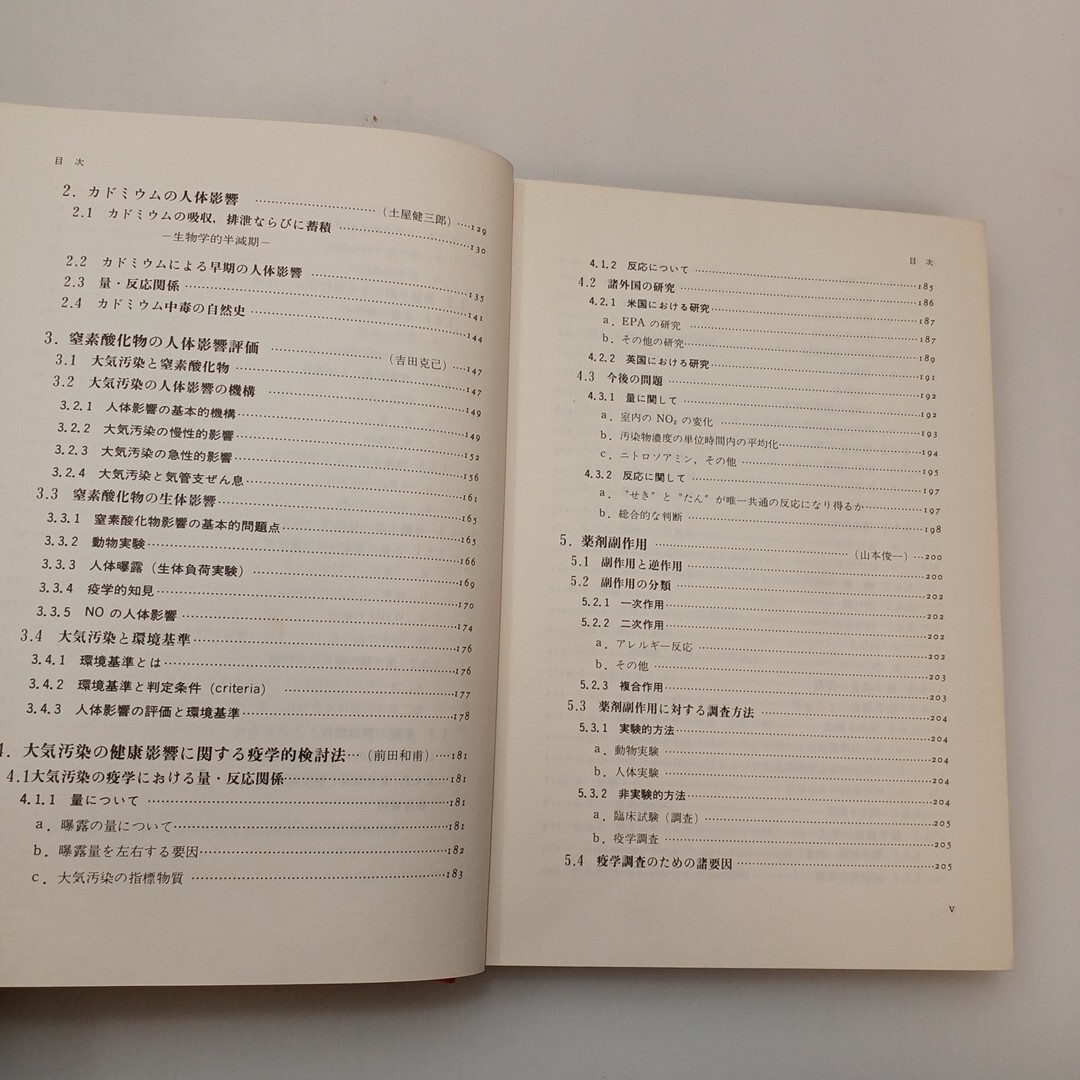 目 次
2. カドミウムの人体影響 ……………………(土屋健三郎)…129
2.1 カドミウムの吸収，排泄ならびに蓄積 ……………………130
―生物学的半減期―
2.2 カドミウムによる早期の人体影響 ……………………135
2.3 量・反応関係 ……………………141
2.4 カドミウム中毒の自然史 ……………………144
3. 窒素酸化物の人体影響評価 ……………………(吉田克己)…147
3.1 大気汚染と窒素酸化物 ……………………147
3.2 大気汚染の人体影響の機構 ……………………149
3.2.1 人体影響の基本的機構……………………149
3.2.2 大気汚染の慢性的影響……………………152
3.2.3 大気汚染の急性的影響……………………156
3.2.4 大気汚染と気管支ぜん息……………………161
3.3 窒素酸化物の生体影響……………………165
3.3.1 窒素酸化物影響の基本的問題点……………………165
3.3.2 動物実験……………………166
3.3.3 人体曝露（生体負荷実験）……………………169
3.3.4 疫学的知見……………………170
3.3.5 NO の人体影響 ……………………174
3.4 大気汚染と環境基準……………………176
3.4.1 環境基準とは……………………176
3.4.2 環境基準と判定条件 (criteria) ……………………177
3.4.3 人体影響の評価と環境基準……………………178
4. 大気汚染の健康影響に関する疫学的検討法…(前田和甫)…181
4.1大気汚染の疫学における量・反応関係……………………181
4.1.1 量について ……………………181
a. 曝露の量について……………………181
b. 曝露量を左右する要因……………………182
c. 大気汚染の指標物質 ……………………183
目 次
4.1.2 反応について ……………………185
4.2 諸外国の研究 ……………………186
4.2.1 米国における研究……………………187
a. EPA の研究 ……………………187
b. その他の研究……………………189
4.2.2 英国における研究……………………191
4.3 今後の問題 ……………………192
4.3.1 量に関して ……………………192
a. 室内の NO₂ の変化 ……………………193
b. 汚染物濃度の単位時間内の平均化……………………194
c. ニトロソアミン，その他 ……………………195
4.3.2 反応に関して ……………………197
a. “せき” と “たん” が唯一共通の反応になり得るか……………………197
b. 総合的な判断 ……………………198
5. 薬剤副作用 ……………………(山本俊一)…200
5.1 副作用と逆作用……………………200
5.2 副作用の分類 ……………………202
5.2.1 一次作用……………………202
5.2.2 二次作用……………………202
a. アレルギー反応 ……………………202
b. その他 ……………………203
5.2.3 複合作用……………………203
5.3 薬剤副作用に対する調査方法 ……………………204
5.3.1 実験的方法……………………204
a. 動物実験 ……………………204
b. 人体実験 ……………………204
5.3.2 非実験的方法……………………204
a. 臨床試験（調査）……………………205
b. 疫学調査……………………205
5.4 疫学調査のための諸要因 ……………………205
v